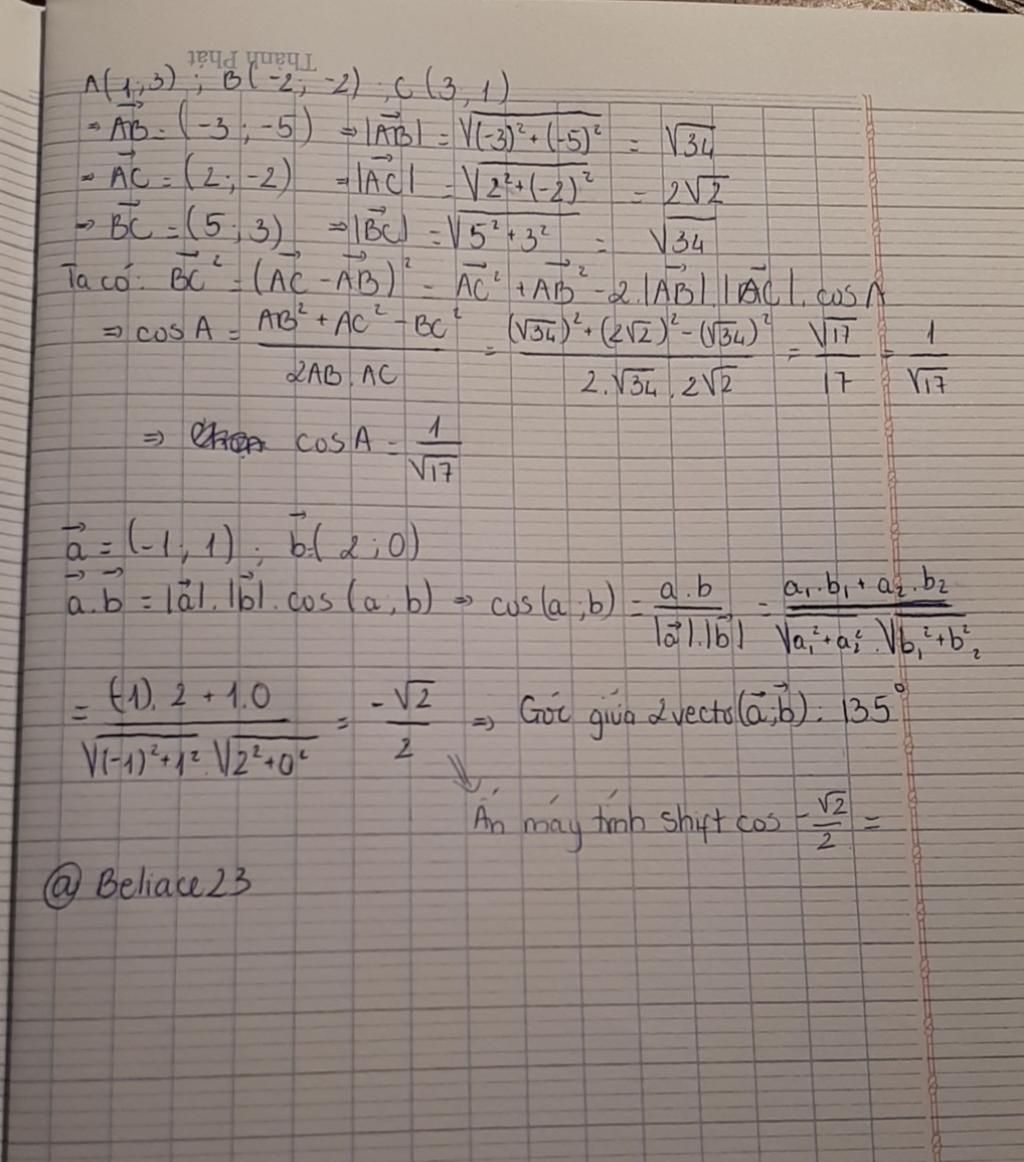 Thành Phát
A(1;3) ; B(-2; -2) ; C(3;1)
⇒ \vec{AB} = (-3; -5) ⇒ |\vec{AB}| = √((-3)² + (-5)²) = √34
⇒ \vec{AC} = (2; -2) ⇒ |\vec{AC}| = √(2² + (-2)²) = 2√2
⇒ \vec{BC} = (5; 3) ⇒ |\vec{BC}| = √(5² + 3²) = √34
Ta có: \vec{BC}² = (\vec{AC} - \vec{AB})² = \vec{AC}² + \vec{AB}² - 2.|\vec{AB}|.|\vec{AC}|. cos A
⇒ cos A = (AB² + AC² - BC²)/(2AB.AC) = ((√34)² + (2√2)² - (√34)²)/(2.√34.2√2) = √17/17 = 1/√17
⇒ cos A = 1/√17
\vec{a} = (-1; 1) ; \vec{b}(2; 0)
\vec{a}.\vec{b} = |\vec{a}|.|\vec{b}|. cos (a, b) ⇒ cos(a;b) = (a.b)/(|\vec{a}|.|\vec{b}|) = (a₁.b₁ + a₂.b₂)/(√(a₁² + a₂²).√(b₁² + b₂²))
= ((-1).2 + 1.0)/(√((-1)² + 1²).√(2² + 0²)) = -√2/2 ⇒ Góc giữa 2 vectơ (\vec{a};\vec{b}): 135°
Ấn máy tính shift cos -√2/2 =
@ Beliace23